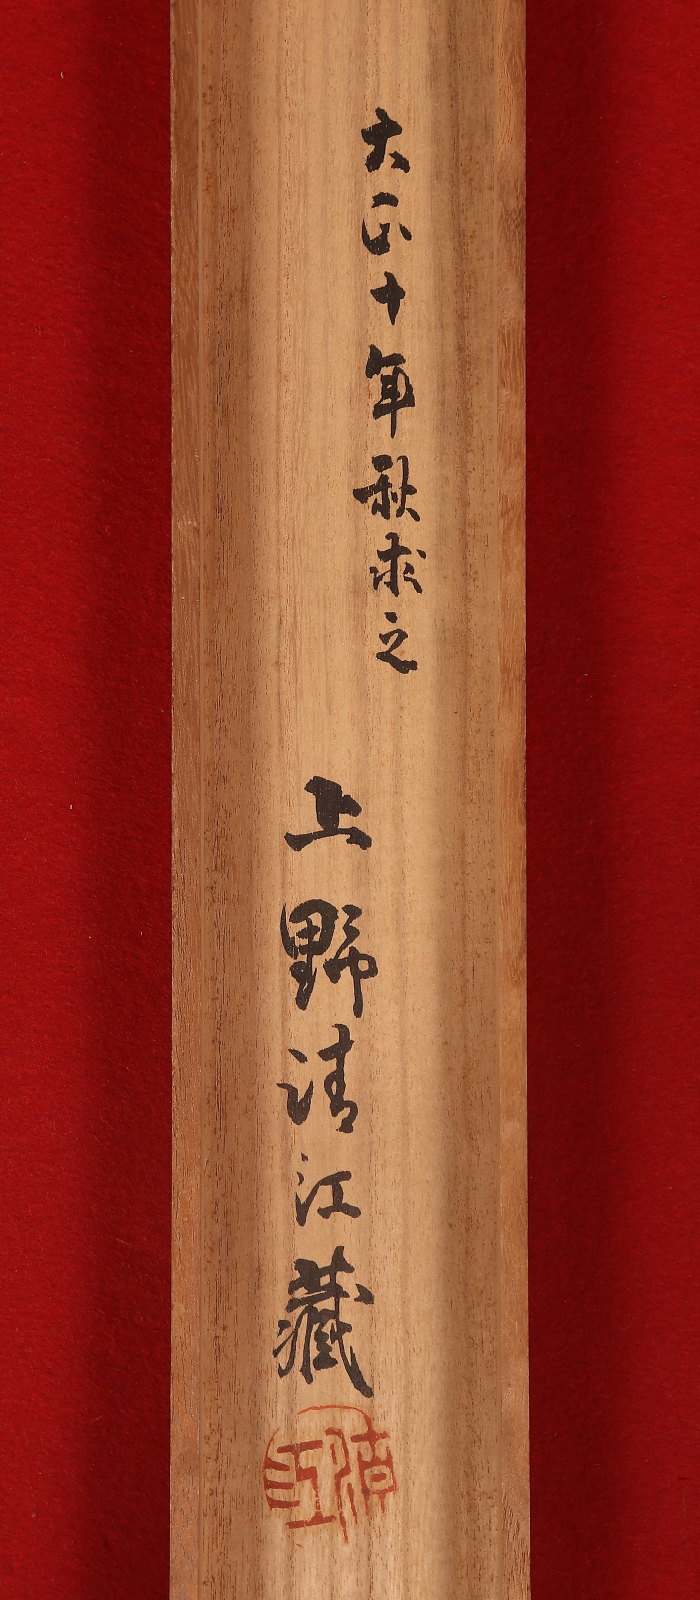 大正十年秋求之
上野清江藏
清江